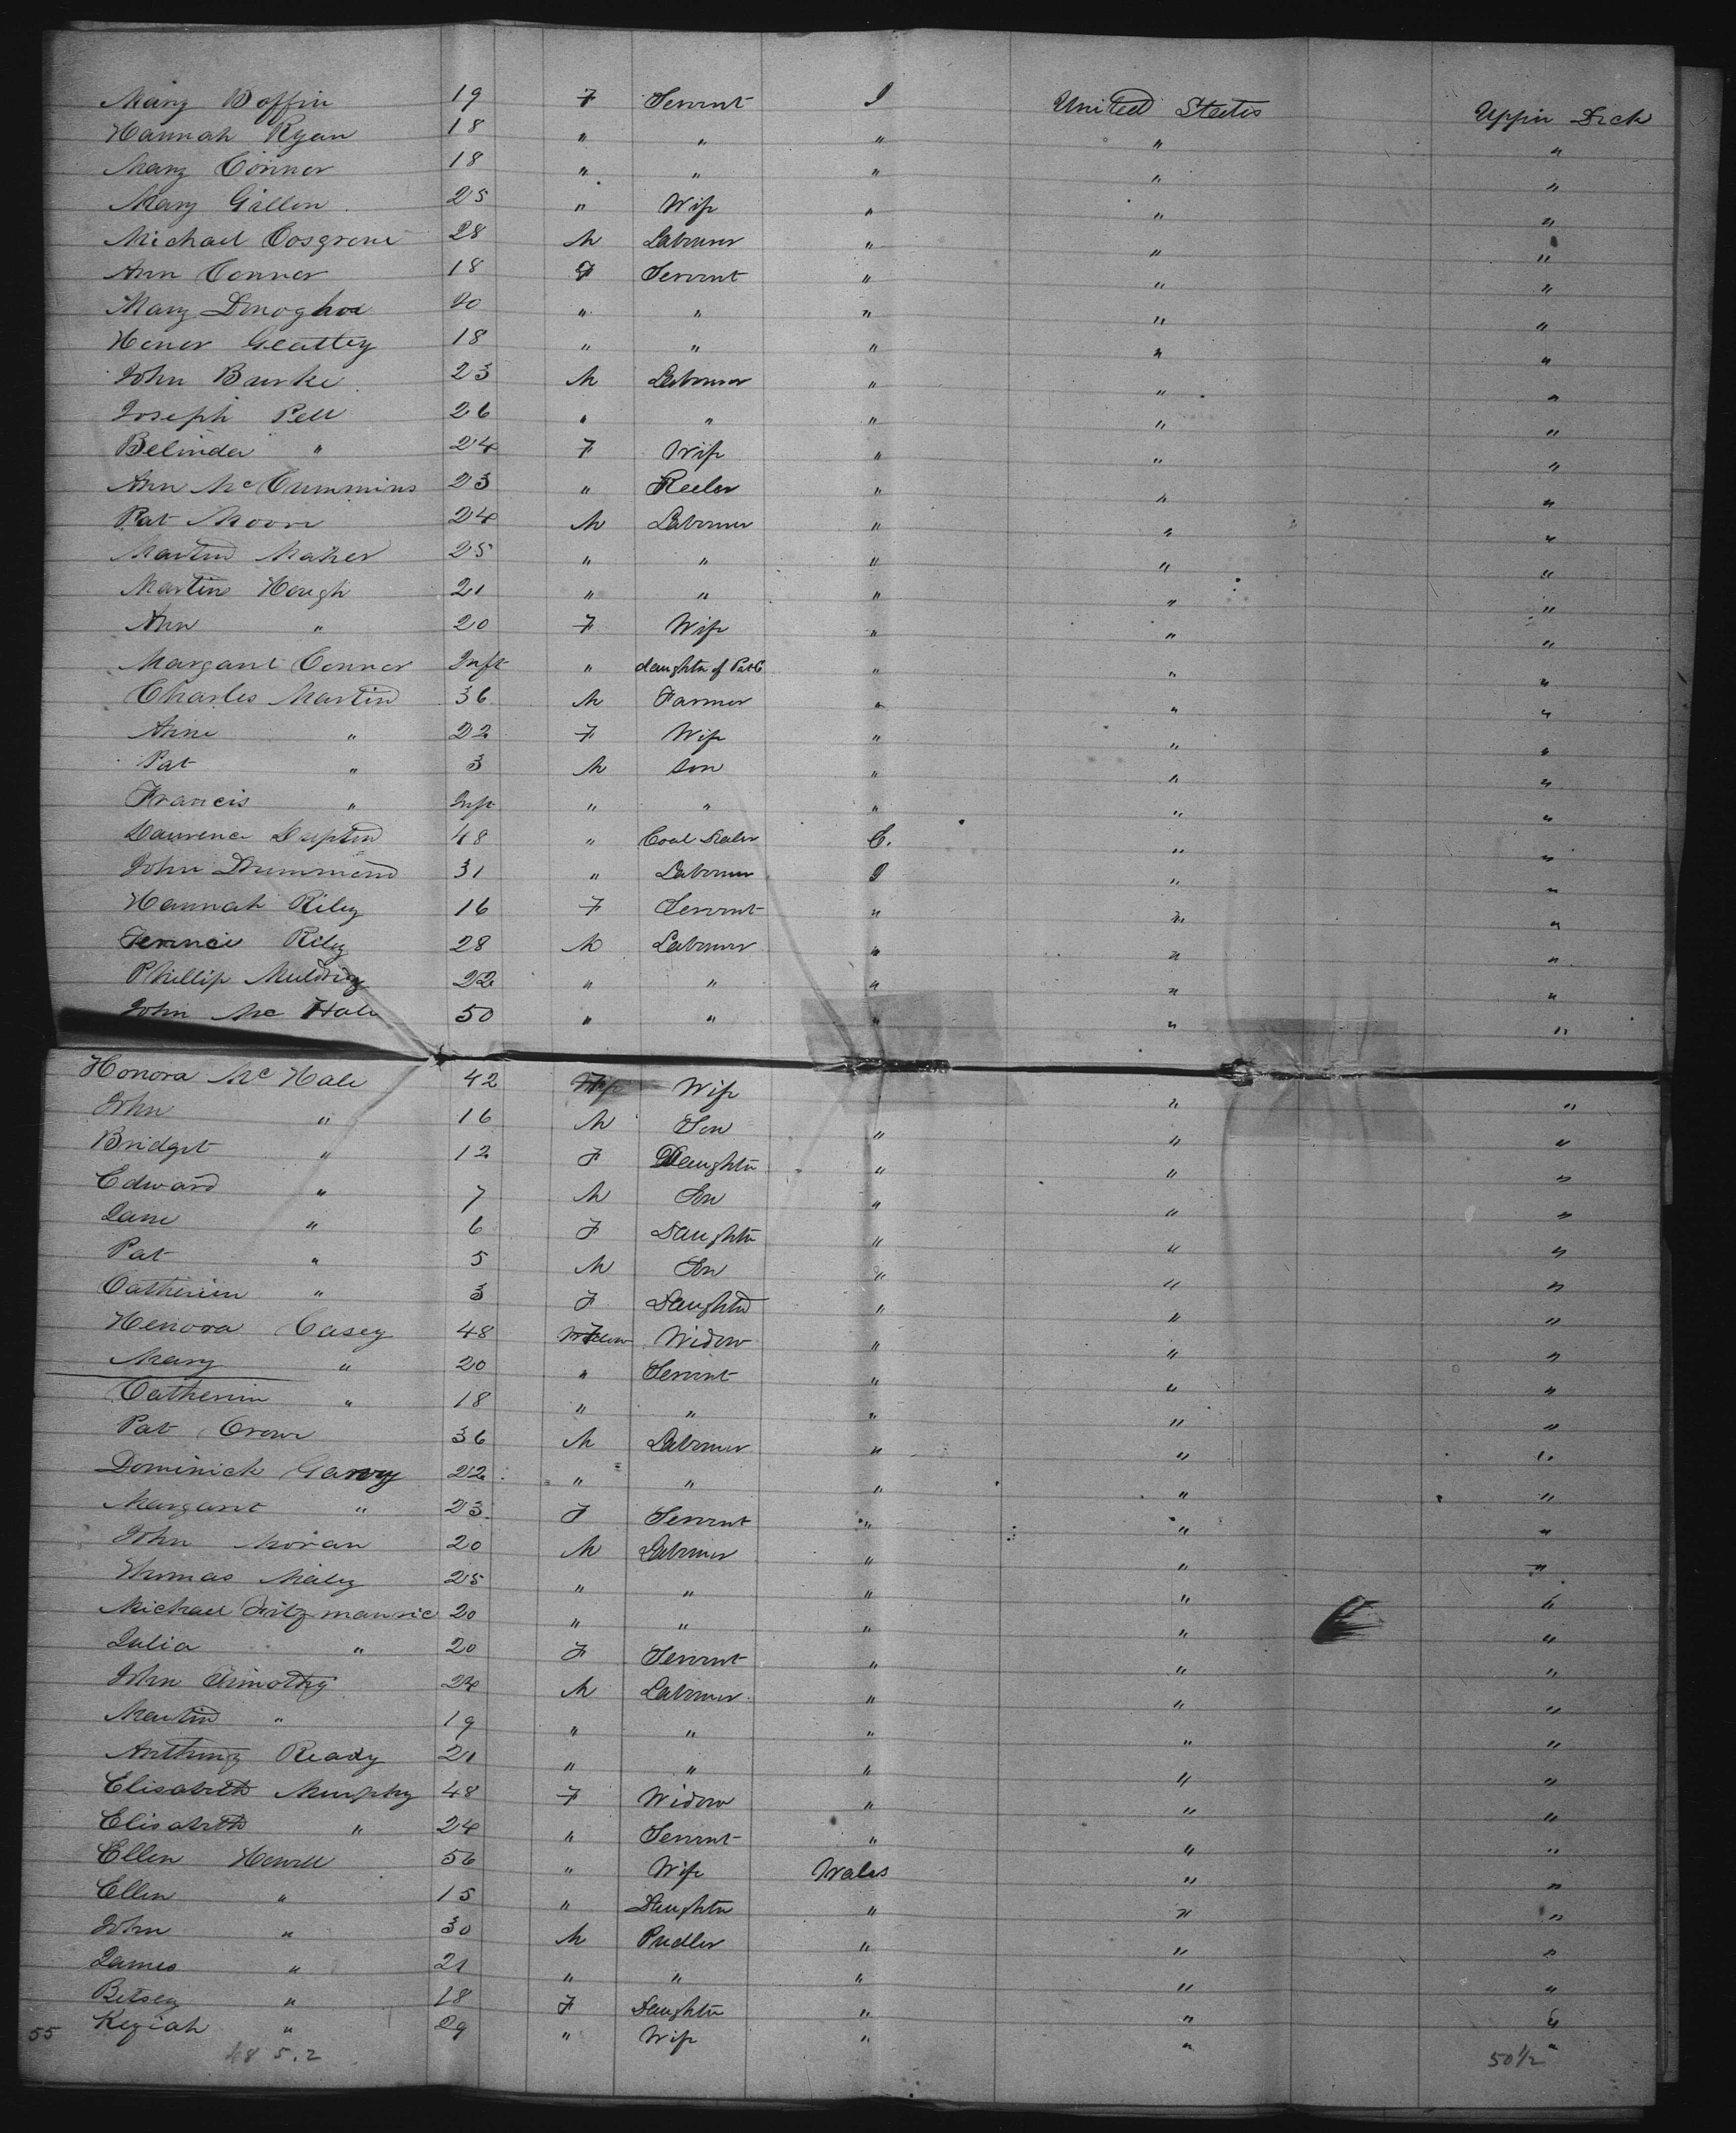 Mary Boffin 19 F Servant I United States Uppin Deck
Hannah Ryan 18 " " " " "
Mary Connor 18 " " " " "
Mary Gillen 25 " Wife " " "
Michael Cosgrove 28 M Labourer " " "
Ann Connor 18 F Servant " " "
Mary Donoghoe 20 " " " " "
Honor Geattey 18 " " " " "
John Burke 23 M Labourer " " "
Joseph Pell 26 " " " " "
Belinda " 24 F Wife " " "
Ann McCummins 23 " Reeler " " "
Pat Moore 24 M Labourer " " "
Martin Maher 25 " " " " "
Martin Hough 21 " " " " "
Ann " 20 F Wife " " "
Margaret Connor Inft " daughter of Pat C " " "
Charles Martin 36 M Farmer " " "
Anne " 22 F Wife " " "
Pat " 3 M Son " " "
Francis " Inft " " " " "
Laurence 48 " Coal Dealer E. " "
John Drummond 31 " Labourer I " "
Hannah Riley 16 F Servant " " "
Terence Riley 28 M Labourer " " "
Phillip 22 " " " " "
John Mc Hale 50 " " " " "
Honora Mc Hale 42 F Wife " "
John " 16 M Son " " "
Bridget " 12 F Daughter " " "
Edward " 7 M Son " " "
Jane " 6 F Daughter " " "
Pat " 5 M Son " " "
Catherine " 3 F Daughter " " "
Henora Casey 48 F Widow " " "
Mary " 20 " Servant " " "
Catherine " 18 " " " " "
Pat Crowe 36 M Labourer " " "
Dominick Garvey 22 " " " " "
Margaret " 23 F Servant " " "
John Moran 20 M Labourer " " "
Thomas Maley 25 " " " " "
Michael Fitzmauric 20 " " " " "
Julia " 20 F Servant " " "
John Timothy 24 M Labourer " " "
Martin " 19 " " " " "
Anthony Ready 21 " " " " "
Elisabeth Murphy 48 F Widow " " "
Elisabeth " 24 " Servant " " "
Ellen Howell 56 " Wife Wales " "
Ellen " 15 " Daughter " " "
John " 30 M Pudler " " "
James " 21 " " " " "
Betsey " 18 F Daughter " " "
55 Keziah " 29 " Wife " " "
48 5.2 50½